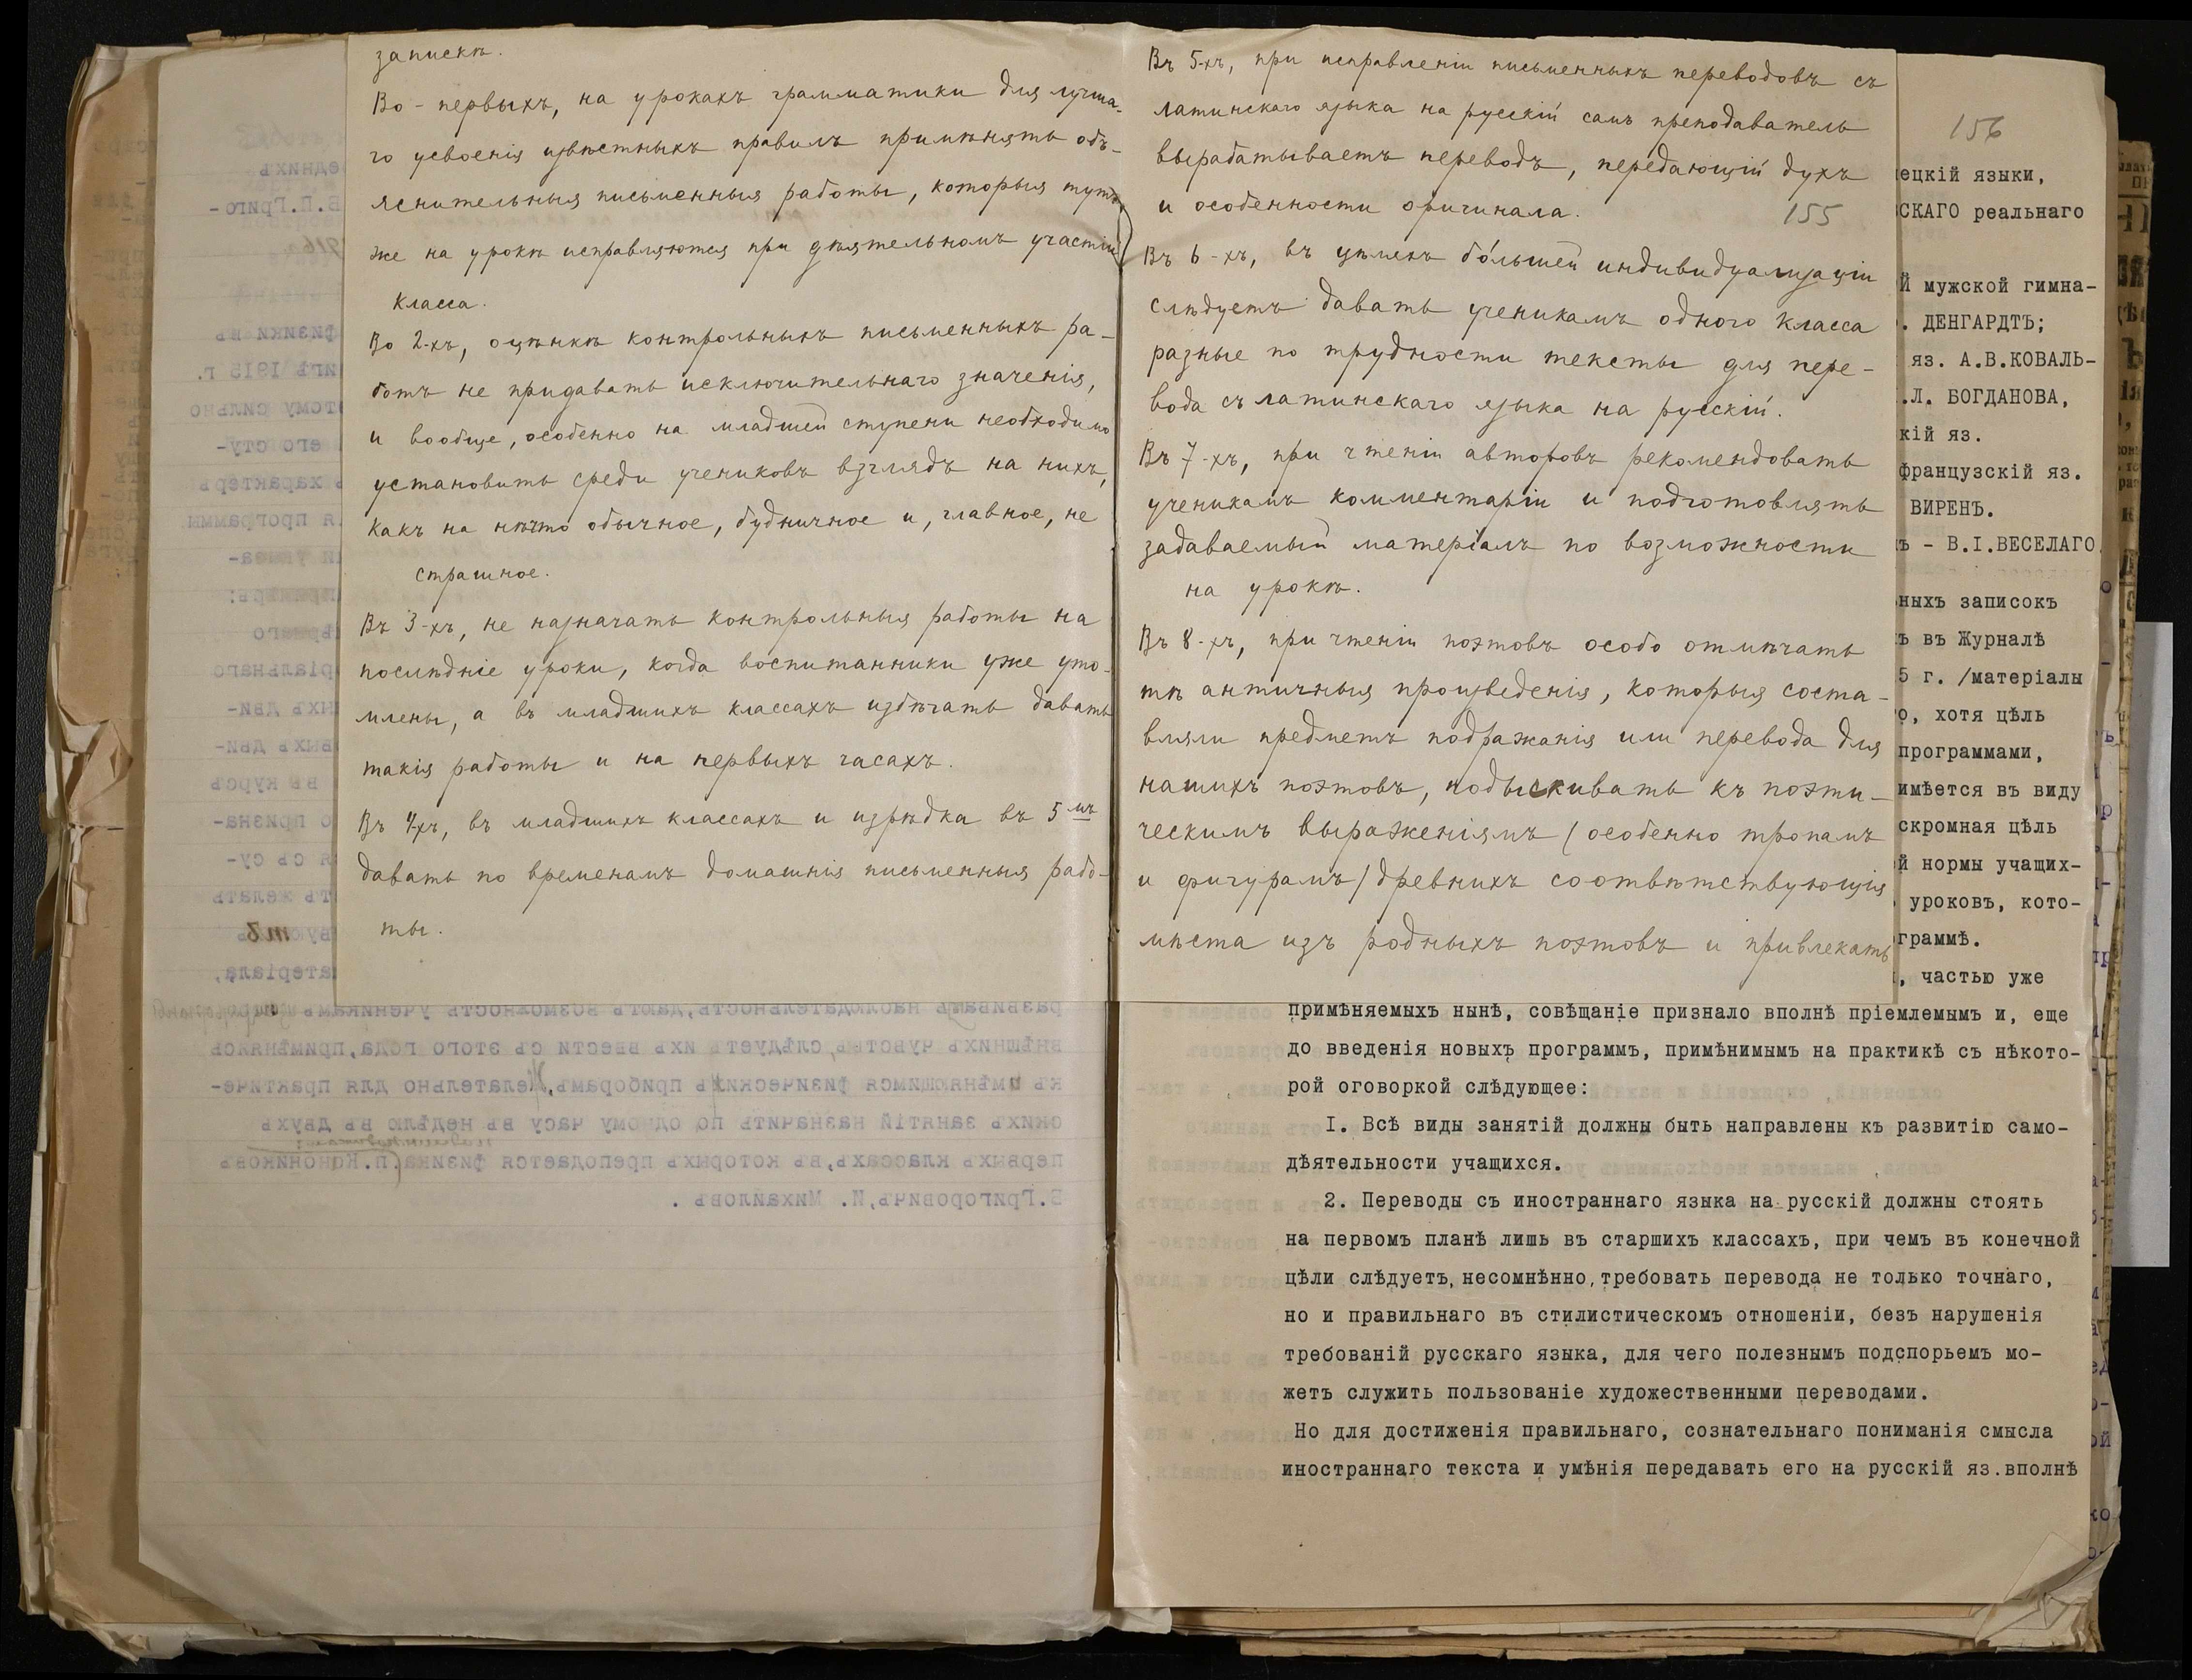 запискѣ.
Во-первыхъ, на урокахъ грамматики для лучша-
го усвоенія извѣстныхъ правилъ примѣнять объ-
яснительныя письменныя работы, которыя тутъ
же на урокѣ исправляются при дѣятельномъ участіи
класса.
Во 2-хъ, оцѣнкѣ контрольныхъ письменныхъ ра-
ботъ не придавать исключительнаго значенія,
и вообще, особенно на младшей ступени необходимо
установить среди учениковъ взглядъ на нихъ,
какъ на нѣчто обычное, будничное и, главное, не
страшное.
Въ 3-хъ, не назначать контрольныя работы на
послѣдніе уроки, когда воспитанники уже уто-
млены, а въ младшихъ классахъ избѣгать давать
такія работы и на первыхъ часахъ.
Въ 4хъ, въ младшихъ классахъ и изрѣдка въ 5мъ
давать по временамъ домашнія письменныя рабо-
ты.
Въ 5-хъ, при исправленіи письменныхъ переводовъ съ
латинскаго языка на русскій самъ преподаватель
вырабатываетъ переводъ, передающій духъ
и особенности оригинала.
155
Въ 6-хъ, въ цѣляхъ бо́льшей индивидуализаціи
слѣдуетъ давать ученикамъ одного класса
разные по трудности тексты для пере-
вода съ латинскаго языка на русскій.
Въ 7-хъ, при чтеніи авторовъ рекомендовать
ученикамъ комментаріи и подготовлять
задаваемый матеріалъ по возможности
на урокѣ.
Въ 8-хъ, при чтеніи поэтовъ особо отмѣчать
тѣ античныя произведенія, которыя соста-
вляли предметъ подражанія или перевода для
нашихъ поэтовъ, подыскивать къ поэти-
ческимъ выраженіямъ (особенно тропамъ
и фигурамъ) древнихъ соотвѣтствующія
мѣста изъ родныхъ поэтовъ и привлекать
156
ецкій языки,
СКАГО реальнаго
й мужской гимна-
. ДЕНГАРДТЪ;
яз. А.В.КОВАЛЬ-
.Л. БОГДАНОВА,
кій яз.
французскій яз.
ВИРЕНЪ.
ъ - В.І.ВЕСЕЛАГО.
ныхъ записокъ
ъ въ Журналѣ
5 г. /матеріалы
о, хотя цѣль
программами,
имѣется въ виду
скромная цѣль
й нормы учащих-
уроковъ, кото-
граммѣ.
, частью уже
примѣняемыхъ нынѣ, совѣщаніе признало вполнѣ пріемлемымъ и, еще
до введенія новыхъ программъ, примѣнимымъ на практикѣ съ нѣкото-
рой оговоркой слѣдующее:
I. Всѣ виды занятій должны быть направлены къ развитію само-
дѣятельности учащихся.
2. Переводы съ иностраннаго языка на русскій должны стоять
на первомъ планѣ лишь въ старшихъ классахъ, при чемъ въ конечной
цѣли слѣдуетъ, несомнѣнно, требовать перевода не только точнаго,
но и правильнаго въ стилистическомъ отношеніи, безъ нарушенія
требованій русскаго языка, для чего полезнымъ подспорьемъ мо-
жетъ служить пользованіе художественными переводами.
Но для достиженія правильнаго, сознательнаго пониманія смысла
иностраннаго текста и умѣнія передавать его на русскій яз.вполнѣ